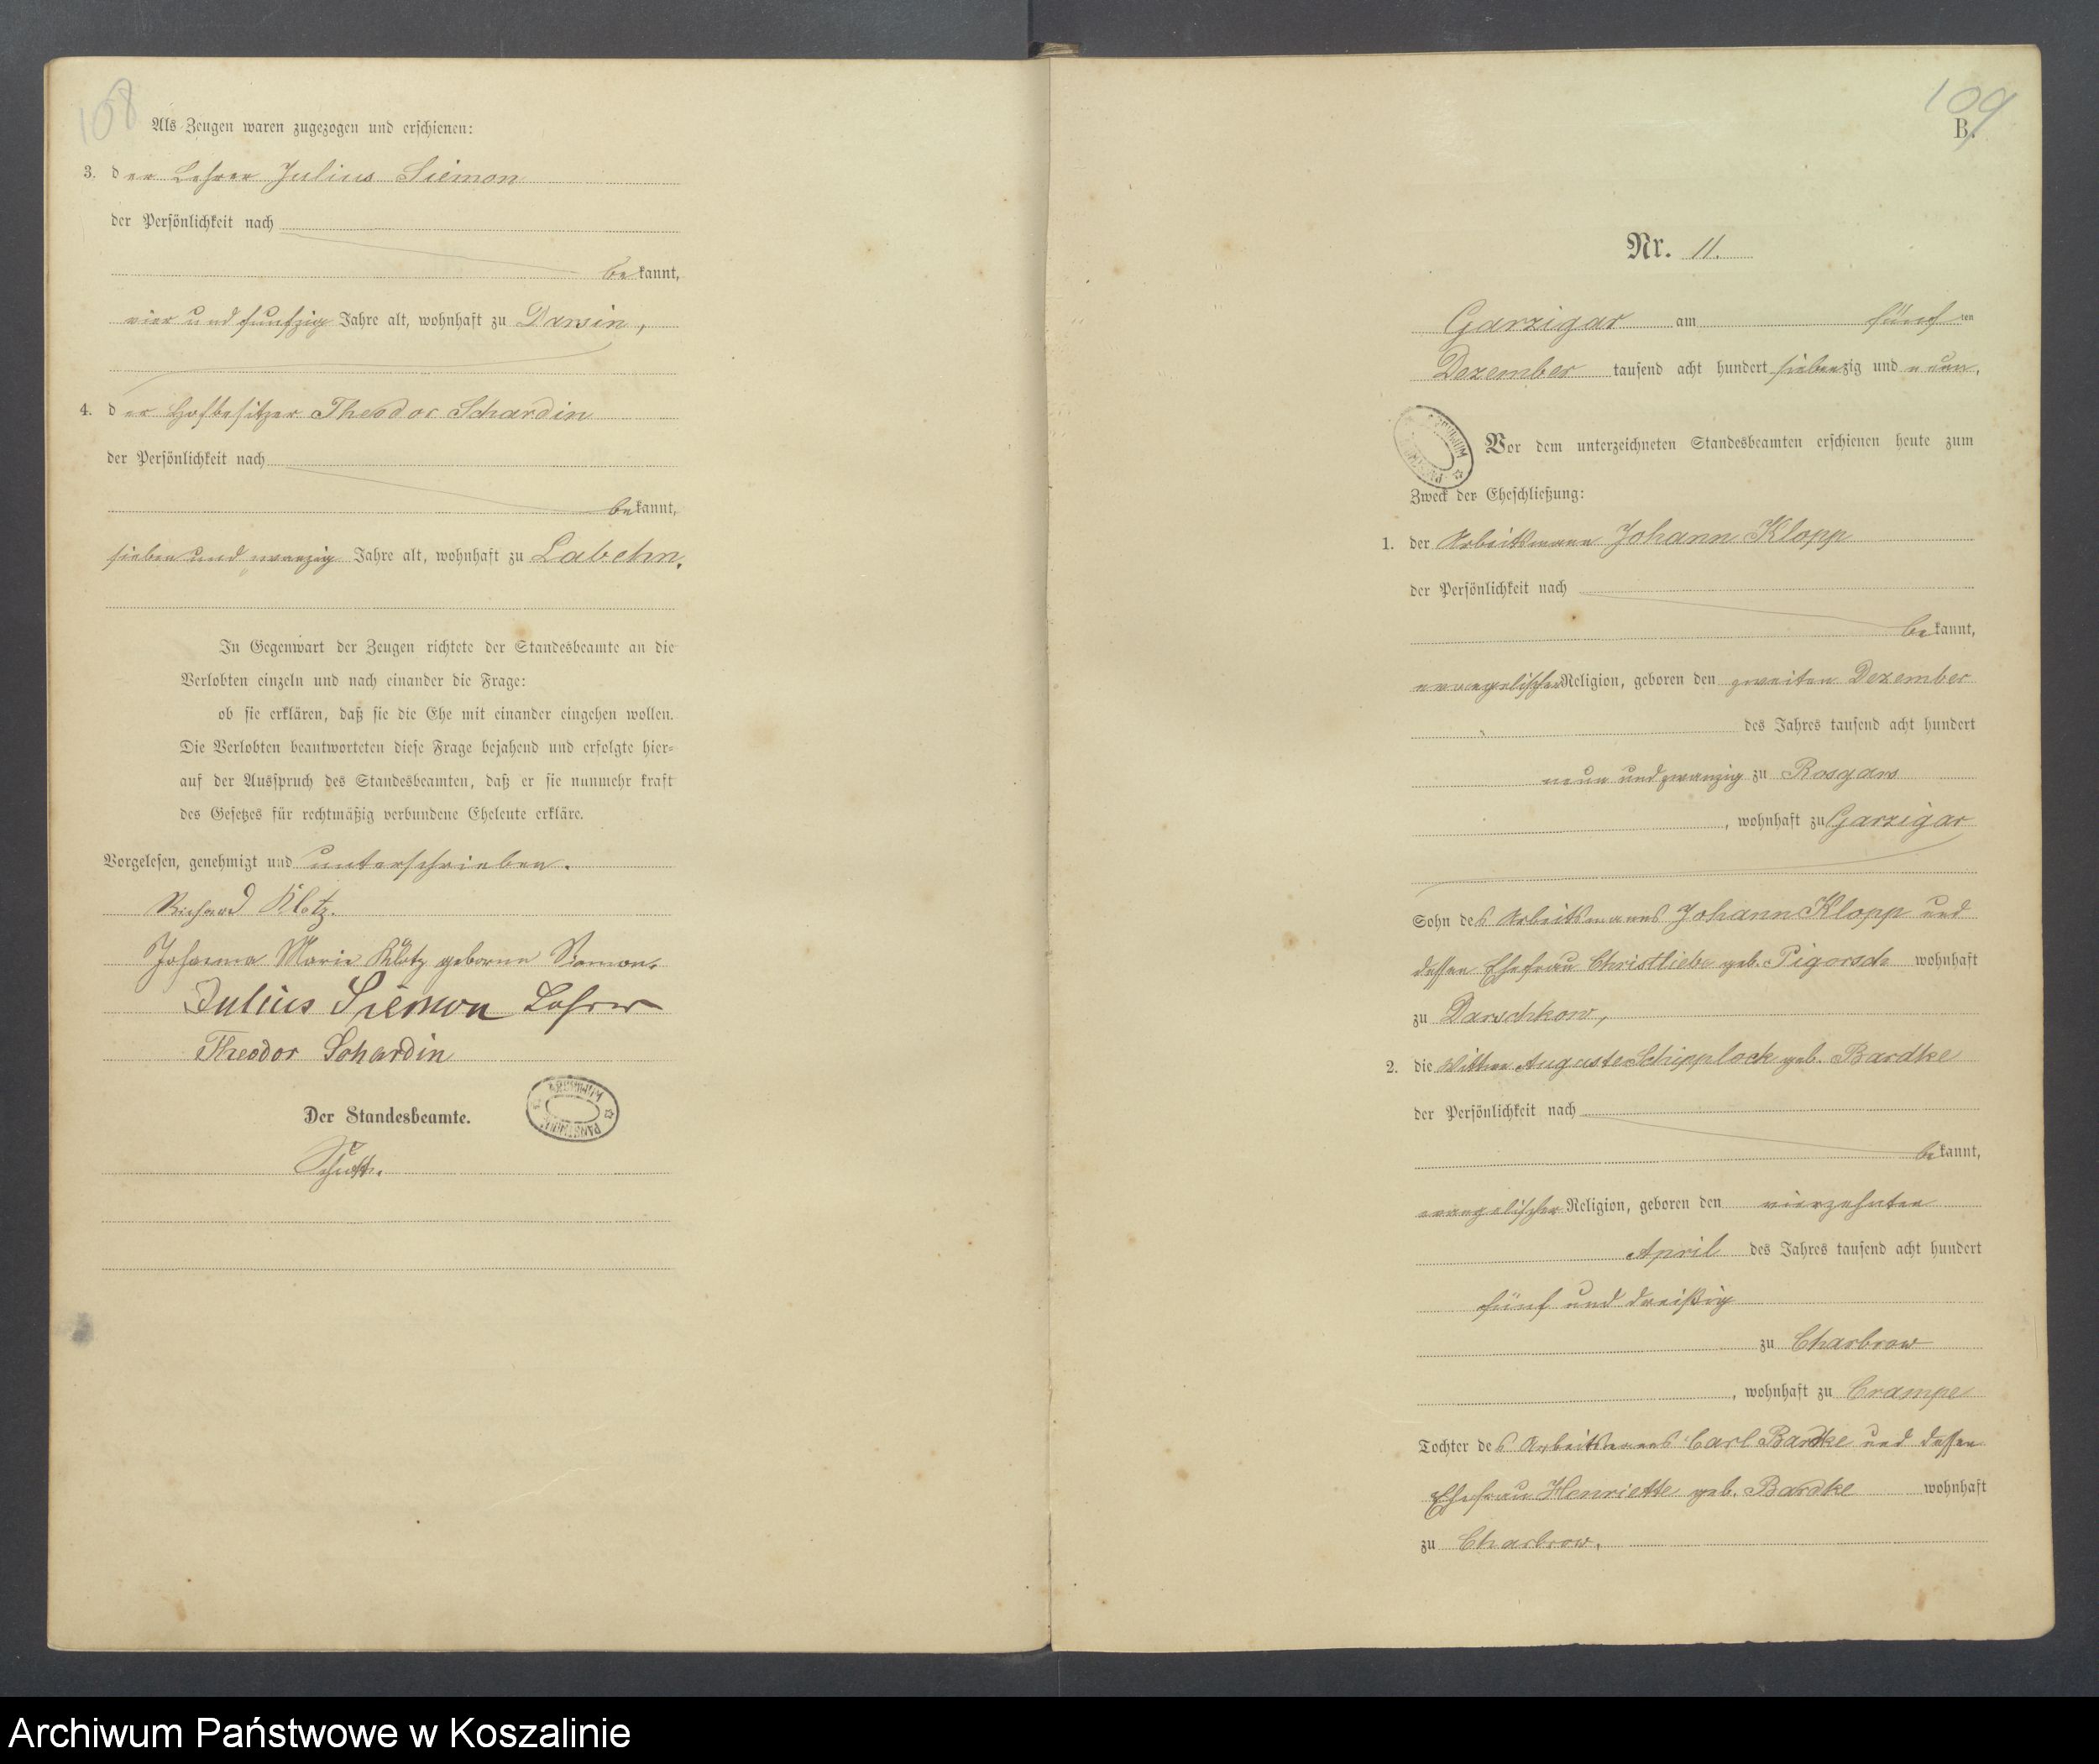 108
Als Zeugen waren zugezogen und erschienen:
3. der Lehrer Julius Siemon
der Persönlichkeit nach
bekannt,
vier und funfzig Jahre alt, wohnhaft zu Darsin,
4. der Hofbesitzer Theodor Schardin
der Persönlichkeit nach
bekannt,
sieben und zwanzig Jahre alt, wohnhaft zu Labehn.
In Gegenwart der Zeugen richtete der Standesbeamte an die
Verlobten einzeln und nach einander die Frage:
ob sie erklären, daß sie die Ehe mit einander eingehen wollen.
Die Verlobten beantworteten diese Frage bejahend und erfolgte hier-
auf der Ausspruch des Standesbeamten, daß er sie nunmehr kraft
des Gesetzes für rechtmäßig verbundene Eheleute erkläre.
Vorgelesen, genehmigt und unterschrieben.
Richard Klotz.
Johanna Marie Klotz geborne Siemon.
Julius Siemon Lehrer
Theodor Schardin
Der Standesbeamte.
109
B.
Nr. 11.
Garzigar am fünften
Dezember tausend acht hundert siebenzig und neun.
Vor dem unterzeichneten Standesbeamten erschienen heute zum
Zweck der Eheschließung:
1. der Arbeitsmann Johann Klopp
der Persönlichkeit nach
bekannt,
evangelischer Religion, geboren den zweiten Dezember
des Jahres tausend acht hundert
neun und zwanzig zu Rosgars
, wohnhaft zu Garzigar
Sohn des Arbeitsmanns Johann Klopp und
dessen Ehefrau Christliebe geb. Pigorsch wohnhaft
zu Darschkow,
2. die Wittwe Auguste Schipplock geb. Bardke
der Persönlichkeit nach
bekannt,
evangelischer Religion, geboren den vierzehnten
April des Jahres tausend acht hundert
fünf und dreißig
zu Charbrow
, wohnhaft zu Crampe
Tochter des Arbeitsmanns Carl Bardke und dessen
Ehefrau Henriette geb. Bardke wohnhaft
zu Charbrow.
Archiwum Państwowe w Koszalinie